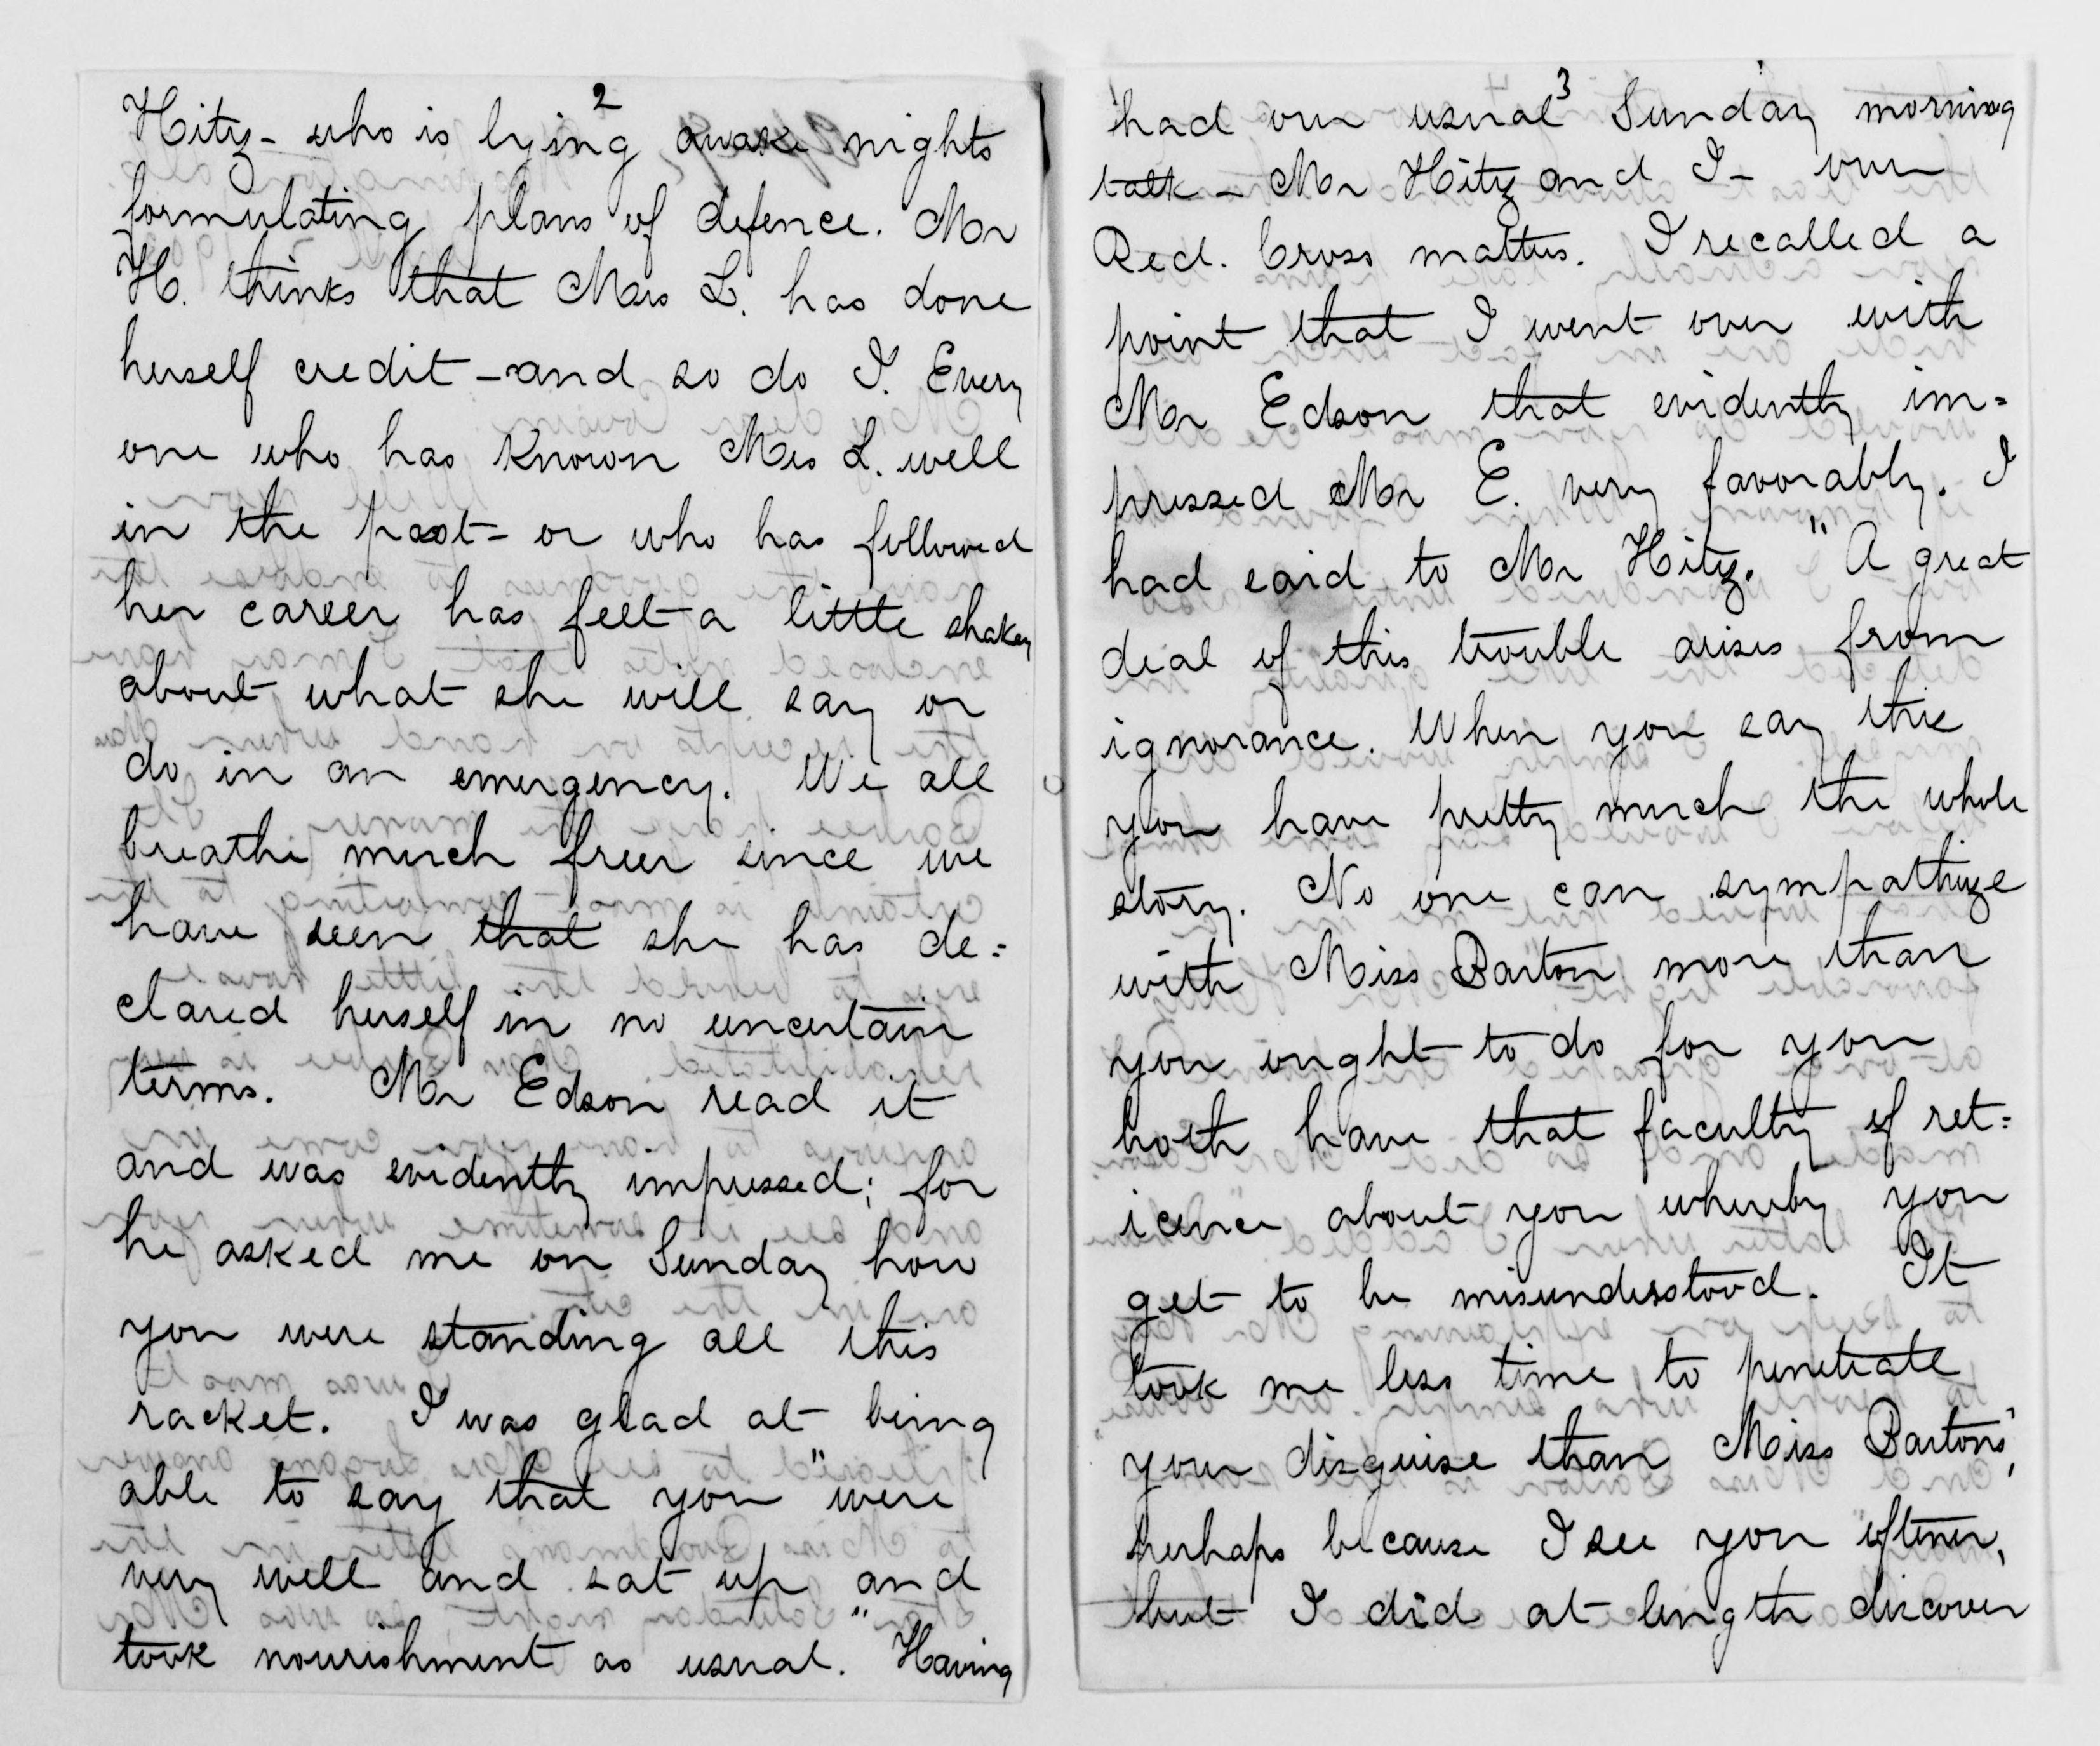 2
Hitz - who is lying awake nights
formulating plans of defence. Mr
H. thinks that Mrs L. has done
herself credit - and so do I. Every
one who has known Mrs L. well
in the past - or who has followed
her career has felt a little shakey
about what she will say or
do in an emergency. We all
breathe much freer since we
have seen that she has de=
clared herself in no uncertain
terms. Mr Edson read it
and was evidently impressed; for
he asked me on Sunday how
you were standing all this
racket. I was glad at being
able to say that you "were
very well and sat up and
took nourishment as usual." Having
3
had our usual Sunday morning
talk - Mr Hitz and I - our
Red. Cross matters. I recalled a
point that I went over with
Mr Edson that evidently im=
pressed Mr E. very favorably. I
had said to Mr Hitz. "A great
deal of this trouble arises from
ignorance. When you say this
you have pretty much the whole
story. No one can sympathize
with Miss Barton more than
you ought to do for you
both have that faculty of ret=
icence about you whereby you
get to be misunderstood. It
took me less time to penetrate
your disguise than Miss Barton's,
perhaps because I see you oftener,
but I did at length discover